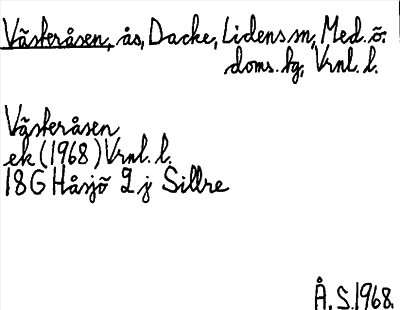 Västeråsen, ås, Dacke, Lidens sn, Med. ö.
doms. hg, Vrnl. l.
Västeråsen
ek (1968) Vrnl. l.
18 G Håsjö 2 j Sillre
Å. S. 1968.